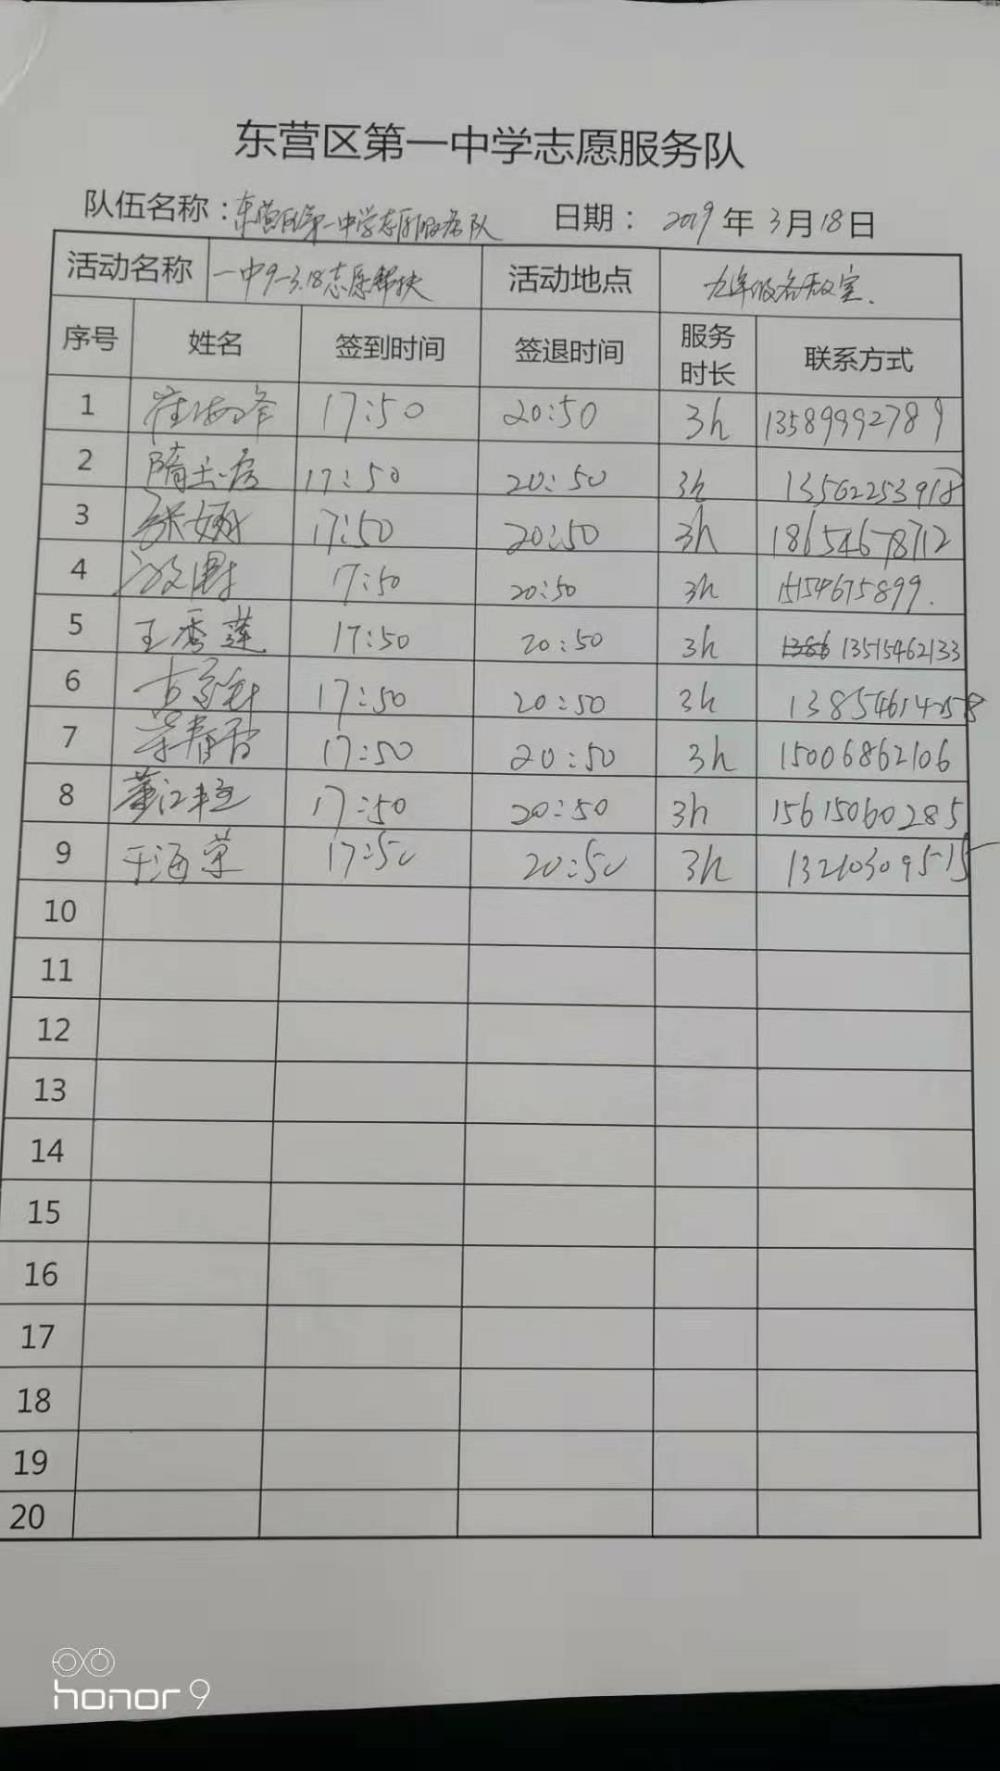 东营区第一中学志愿服务队
队伍名称：东营区第一中学志愿服务队 日期： 2019 年 3 月 18 日
活动名称 一中9-3.18志愿帮扶 活动地点 九年级各教室.
序号 姓名 签到时间 签退时间 服务时长 联系方式
1 17:50 20:50 3h 13589992789
2 17:50 20:50 3h 13562253918
3 张 17:50 20:50 3h 18654678712
4 17:50 20:50 3h 15154675899.
5 王秀莲 17:50 20:50 3h 13515462133
6 17:50 20:50 3h
7 17:50 20:50 3h 15006862106
8 董江 17:50 20:50 3h 15615060285
9 于海荣 17:50 20:50 3h 13210309515
10
11
12
13
14
15
16
17
18
19
20
honor 9